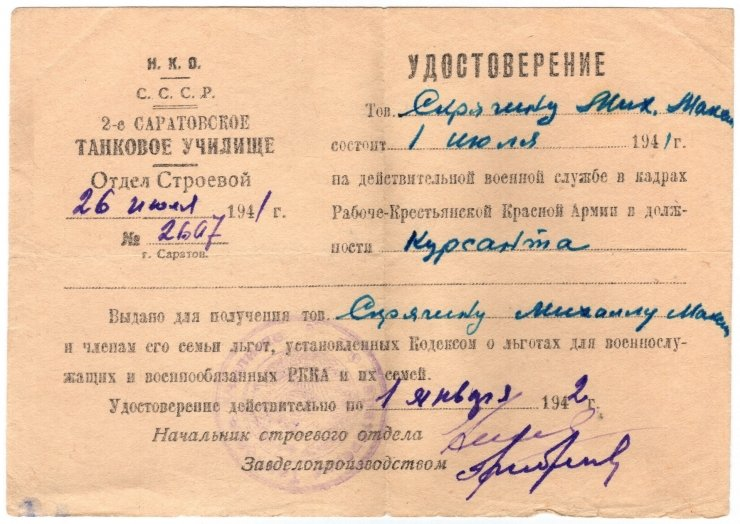 Н. К. О.
С. С. С. Р.
2-е САРАТОВСКОЕ
ТАНКОВОЕ УЧИЛИЩЕ
Отдел Строевой
26 июля 1941 г.
№
г. Саратов.
УДОСТОВЕРЕНИЕ
Тов. Спрячину Мих. Макси
состоит 1 июля 1941 г.
на действительной военной службе в кадрах
Рабоче-Крестьянской Красной Армии в долж-
ности Курсанта
Выдано для получения тов. Спрячину Михаилу Макси
и членам его семьи льгот, установленных Кодексом о льготах для военнослу-
жащих и военнообязанных РККА и их семей.
Удостоверение действительно по 1 января 1942 г.
Начальник строевого отдела
Завделопроизводством